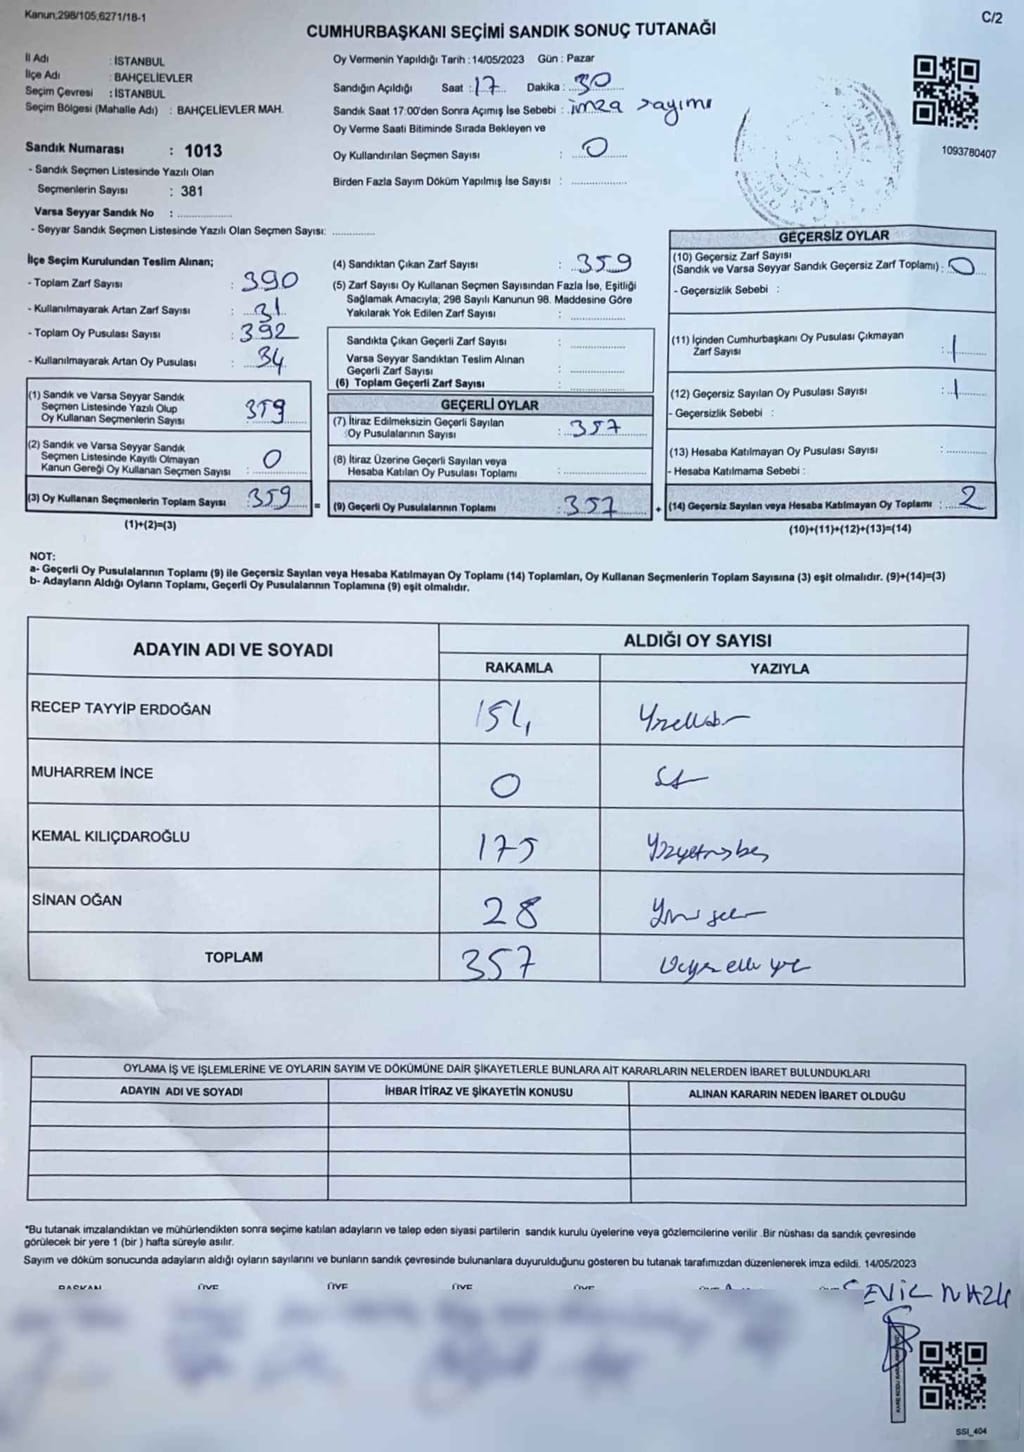 Kanun,298/105,6271/18-1
C/2
CUMHURBAŞKANI SEÇİMİ SANDIK SONUÇ TUTANAĞI
İl Adı : İSTANBUL
İlçe Adı : BAHÇELİEVLER
Seçim Çevresi : İSTANBUL
Seçim Bölgesi (Mahalle Adı) : BAHÇELİEVLER MAH.
Sandık Numarası : 1013
- Sandık Seçmen Listesinde Yazılı Olan
Seçmenlerin Sayısı : 381
Varsa Seyyar Sandık No : ................
- Seyyar Sandık Seçmen Listesinde Yazılı Olan Seçmen Sayısı: ............
Oy Vermenin Yapıldığı Tarih : 14/05/2023 Gün : Pazar
Sandığın Açıldığı Saat : 17 Dakika : 30
Sandık Saat 17:00'den Sonra Açımış İse Sebebi : imza sayımı
Oy Verme Saati Bitiminde Sırada Bekleyen ve
Oy Kullandırılan Seçmen Sayısı : 0
Birden Fazla Sayım Döküm Yapılmış İse Sayısı : ................
1093780407
İlçe Seçim Kurulundan Teslim Alınan;
- Toplam Zarf Sayısı : 390
- Kullanılmayarak Artan Zarf Sayısı : 31
- Toplam Oy Pusulası Sayısı : 392
- Kullanılmayarak Artan Oy Pusulası : 34
(1) Sandık ve Varsa Seyyar Sandık
Seçmen Listesinde Yazılı Olup
Oy Kullanan Seçmenlerin Sayısı 359
(2) Sandık ve Varsa Seyyar Sandık
Seçmen Listesinde Kayıtlı Olmayan
Kanun Gereği Oy Kullanan Seçmen Sayısı : 0
(3) Oy Kullanan Seçmenlerin Toplam Sayısı : 359
(1)+(2)=(3)
(4) Sandıktan Çıkan Zarf Sayısı : 359
(5) Zarf Sayısı Oy Kullanan Seçmen Sayısından Fazla İse, Eşitliği
Sağlamak Amacıyla; 298 Sayılı Kanunun 98. Maddesine Göre
Yakılarak Yok Edilen Zarf Sayısı : ................
Sandıkta Çıkan Geçerli Zarf Sayısı : ................
Varsa Seyyar Sandıktan Teslim Alınan
Geçerli Zarf Sayısı : ................
(6) Toplam Geçerli Zarf Sayısı : ................
GEÇERLİ OYLAR
(7) İtiraz Edilmeksizin Geçerli Sayılan
Oy Pusulalarının Sayısı : 357
(8) İtiraz Üzerine Geçerli Sayılan veya
Hesaba Katılan Oy Pusulası Toplamı : ................
= (9) Geçerli Oy Pusulalarının Toplamı : 357
GEÇERSİZ OYLAR
(10) Geçersiz Zarf Sayısı
(Sandık ve Varsa Seyyar Sandık Geçersiz Zarf Toplamı) : 0
- Geçersizlik Sebebi :
(11) İçinden Cumhurbaşkanı Oy Pusulası Çıkmayan
Zarf Sayısı : 1
(12) Geçersiz Sayılan Oy Pusulası Sayısı : 1
- Geçersizlik Sebebi :
(13) Hesaba Katılmayan Oy Pusulası Sayısı : ............
- Hesaba Katılmama Sebebi :
+ (14) Geçersiz Sayılan veya Hesaba Katılmayan Oy Toplamı : 2
(10)+(11)+(12)+(13)=(14)
NOT:
a- Geçerli Oy Pusulalarının Toplamı (9) ile Geçersiz Sayılan veya Hesaba Katılmayan Oy Toplamı (14) Toplamları, Oy Kullanan Seçmenlerin Toplam Sayısına (3) eşit olmalıdır. (9)+(14)=(3)
b- Adayların Aldığı Oyların Toplamı, Geçerli Oy Pusulalarının Toplamına (9) eşit olmalıdır.
ADAYIN ADI VE SOYADI
ALDIĞI OY SAYISI
RAKAMLA YAZIYLA
RECEP TAYYİP ERDOĞAN 154
MUHARREM İNCE 0
KEMAL KILIÇDAROĞLU 175 Yüzyetmişbeş
SİNAN OĞAN 28
TOPLAM 357
OYLAMA İŞ VE İŞLEMLERİNE VE OYLARIN SAYIM VE DÖKÜMÜNE DAİR ŞİKAYETLERLE BUNLARA AİT KARARLARIN NELERDEN İBARET BULUNDUKLARI
ADAYIN ADI VE SOYADI İHBAR İTİRAZ VE ŞİKAYETİN KONUSU ALINAN KARARIN NEDEN İBARET OLDUĞU
"Bu tutanak imzalandıktan ve mühürlendikten sonra seçime katılan adayların ve talep eden siyasi partilerin sandık kurulu üyelerine veya gözlemcilerine verilir .Bir nüshası da sandık çevresinde
görülecek bir yere 1 (bir ) hafta süreyle asılır.
Sayım ve döküm sonucunda adayların aldığı oyların sayılarını ve bunların sandık çevresinde bulunanlara duyurulduğunu gösteren bu tutanak tarafımızdan düzenlenerek imza edildi. 14/05/2023
BAŞKAN ÜYE ÜYE ÜYE ÜYE
SEVİL NAZLI
SSI_404